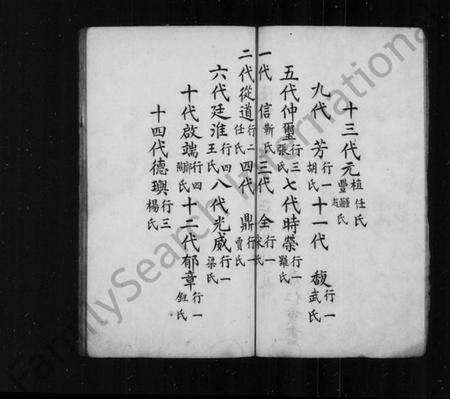 十三代元植任氏豐氏
九代 芳行一胡氏十一代 馥行一武氏
五代仲璽行三張氏七代時榮行一氏
一代 信靳氏三代 全行一氏
二代從道行二任氏四代 鼎行一賈氏
六代廷淮行四王氏八代光威行一梁氏
十代啟端行四氏十二代郁章行一鈕氏
十四代德璵行三楊氏
FamilySearch International